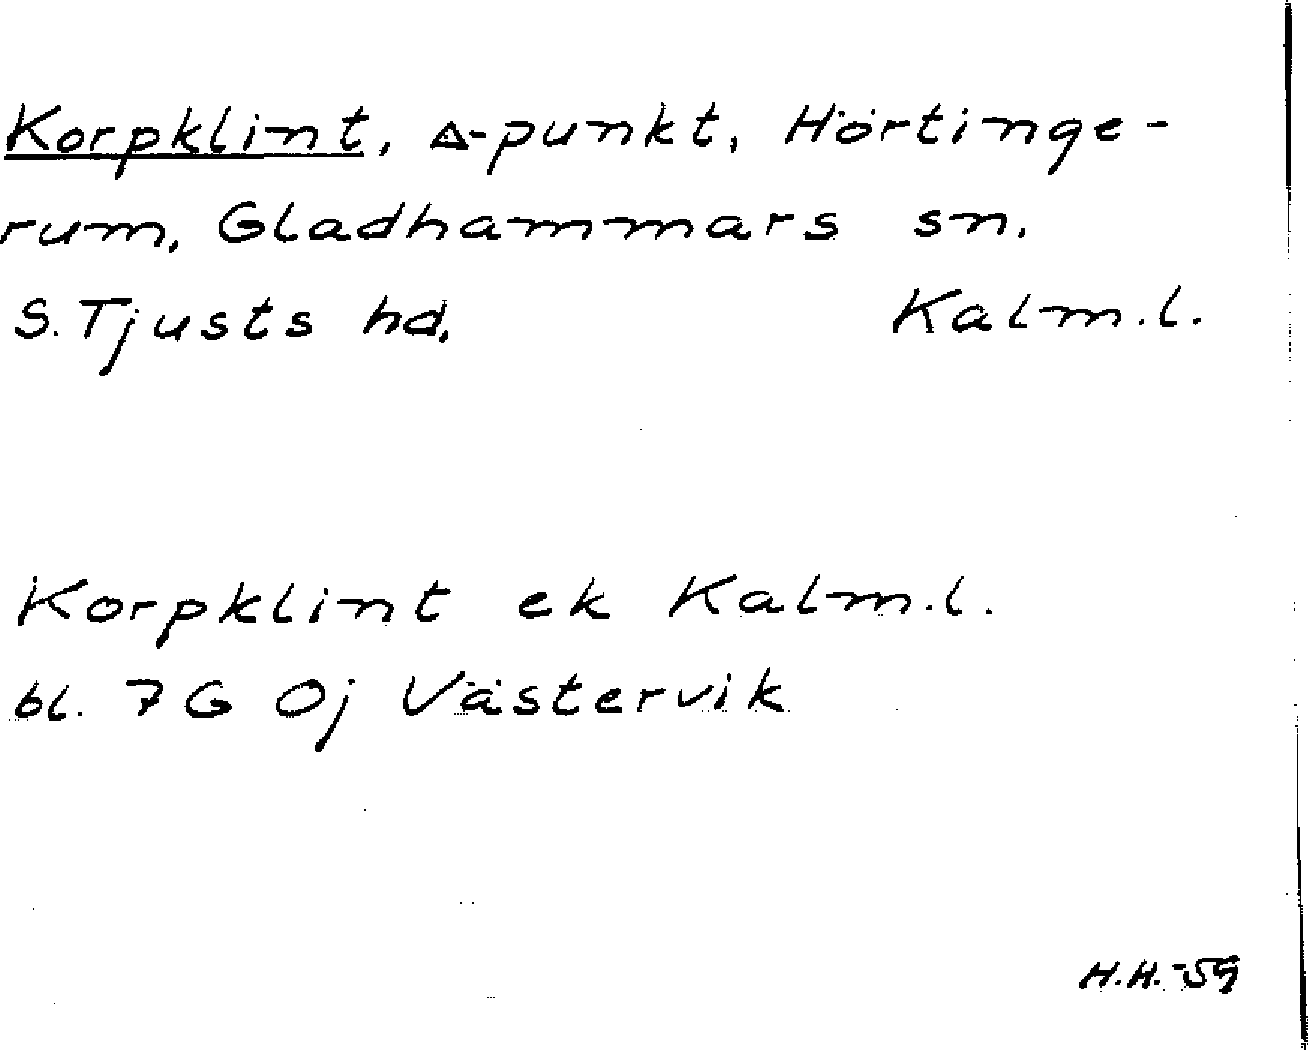 Korpklint, △-punkt, Hörtinge-
rum, Gladhammars sn.
S. Tjusts hd. Kalm.l.
Korpklint ek Kalm.l.
bl. 7G 0j Västervik
H.H.-59